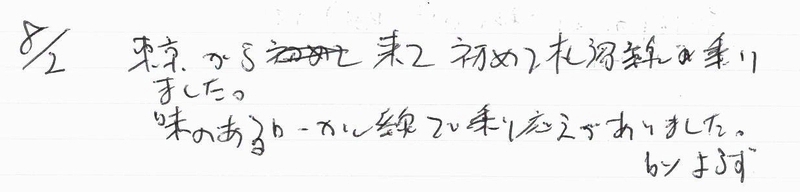 8/2 東京から初めて来て初めて札沼線に乗り
ました。
味のあるローカル線で乗り応えがありました。
by よろず